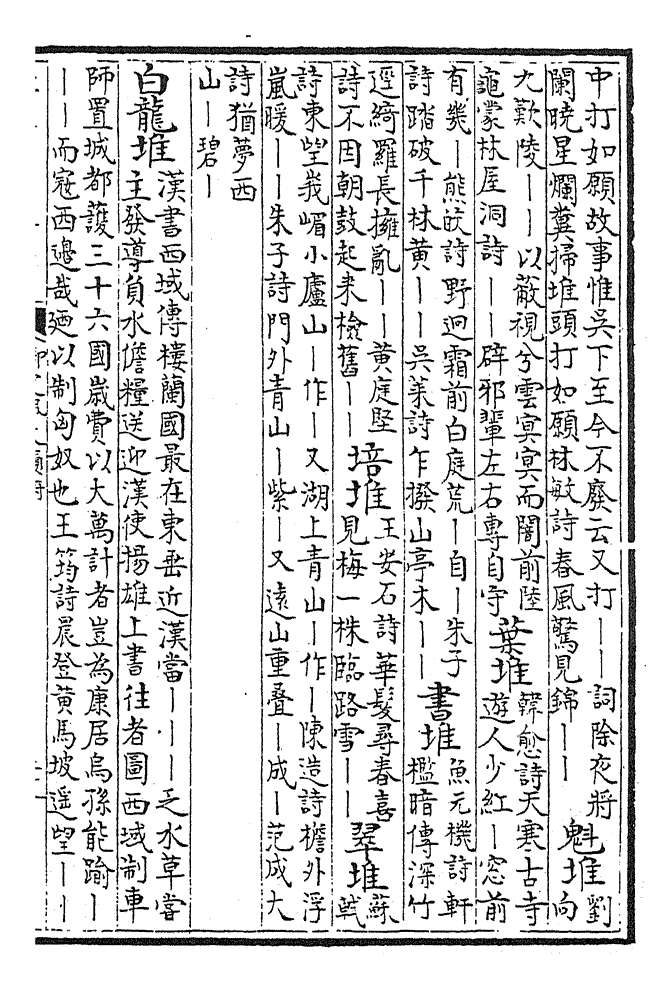 中打如願故事惟吳下至今不廢云又打｜｜詞除夜將
闌曉星爛糞掃堆頭打如願林敏詩春風驚見錦｜｜
魁堆
劉
向
九歎陵｜｜以蔽視兮雲冥冥而闇前陸
龜蒙林屋洞詩｜｜辟邪輩左右專自守
葉堆
韓愈詩天寒古寺
遊人少紅｜窓前
有幾｜熊皎詩野迥霜前白庭荒｜自｜朱子
詩踏破千林黃｜｜吳萊詩乍撥山亭木｜｜
書堆
魚元機詩軒
檻暗傳深竹
逕綺羅長擁亂｜｜黃庭堅
詩不因朝鼓起来檢舊｜｜
培堆
王安石詩華髮尋春喜
見梅一株臨路雪｜｜
翠堆
蘇
軾
詩東望峩嵋小廬山｜作｜又湖上青山｜作｜陳造詩檐外浮
嵐暖｜｜朱子詩門外青山｜紫｜又遠山重疊｜成｜范成大
詩猶夢西
山｜碧｜
白龍堆
漢書西域傳樓蘭國最在東垂近漢當｜｜｜乏水草嘗
主發導負水儋糧送迎漢使揚雄上書往者圖西域制車
師置城都護三十六國歲費以大萬計者豈為康居烏孫能踰｜
｜｜而寇西邊哉廼以制匈奴也王筠詩晨登黃馬坡遥望｜｜